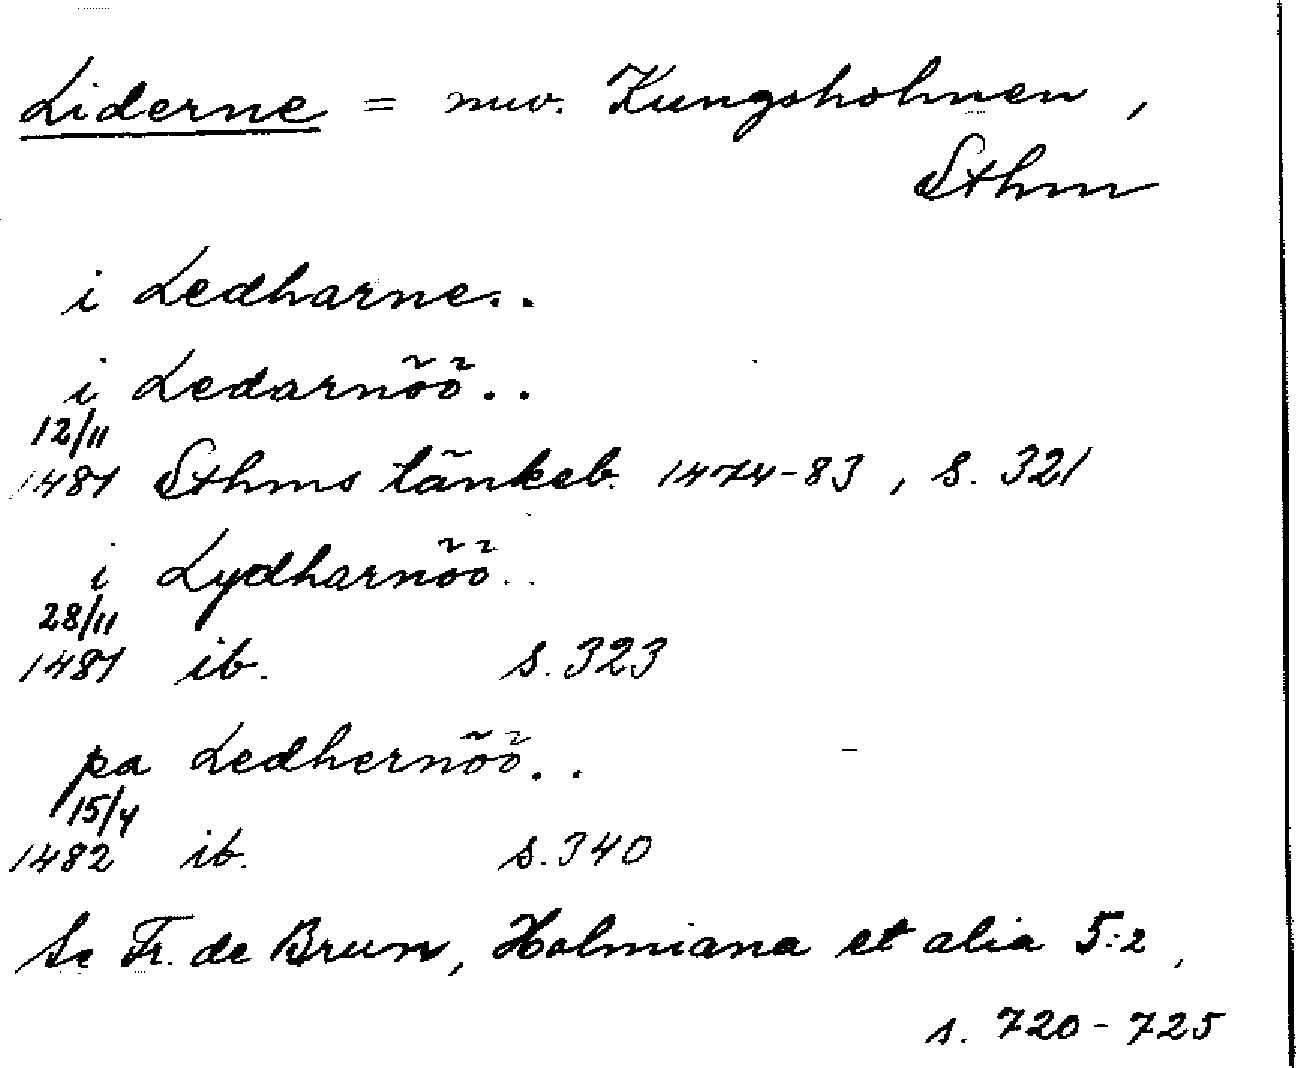 Liderne = nuv. Kungsholmen,
Sthm
i Ledharne..
i Ledarnöö..
12/11
1481 Sthms tänkeb. 1474-83, s. 321
i Lydharnöö..
28/11
1481 ib. s. 323
pa Ledhernöö..
15/4
1482 ib. s. 340
Se Fr. de Brun, Holmiana et alia 5:2,
s. 720-725